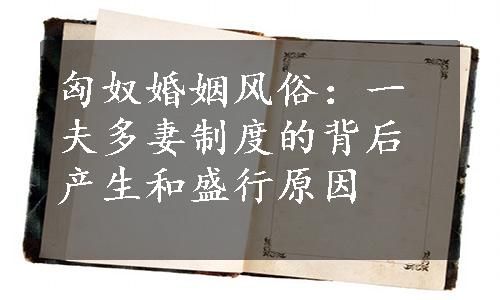 匈奴婚姻风俗：一
夫多妻制度的背后
产生和盛行原因